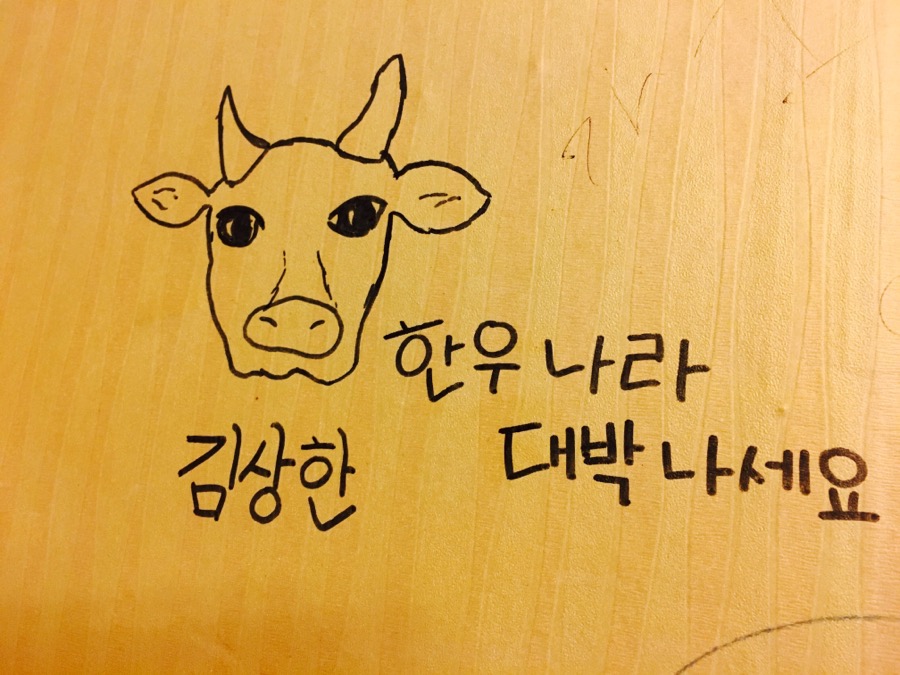 한우 나라
대박 나세요
김상한